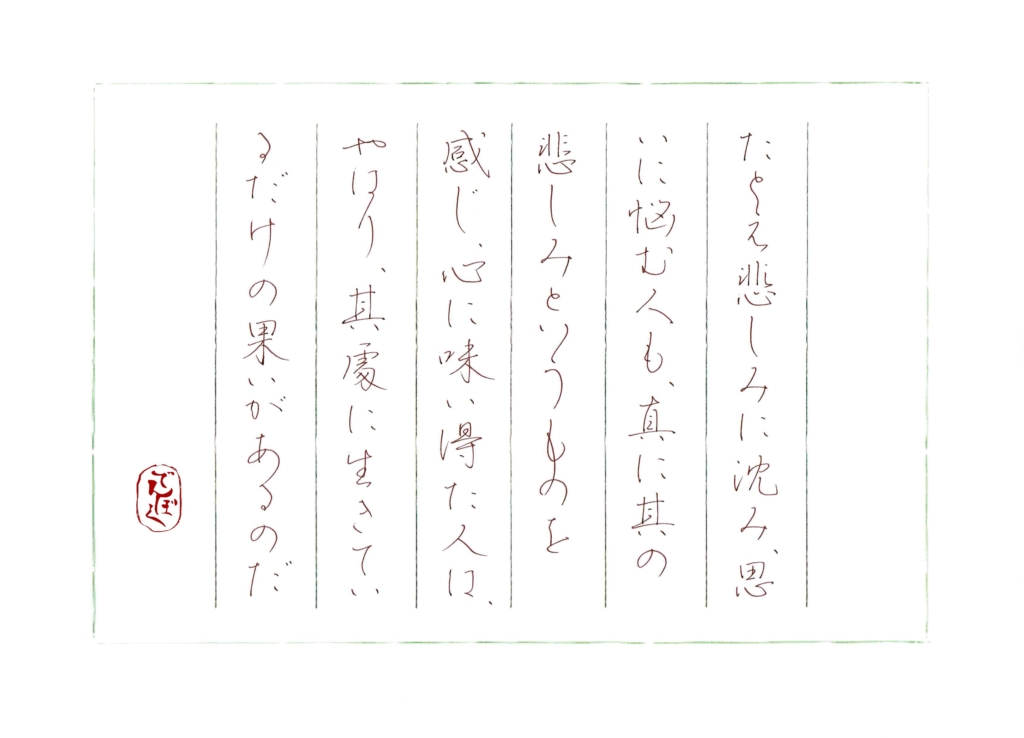 たとえ悲しみに沈み、思
いに悩む人も、真に其の
悲しみというものを
感じ、心に味い得た人は、
やはり、其處に生きてい
るだけの果いがあるのだ
でんぼく